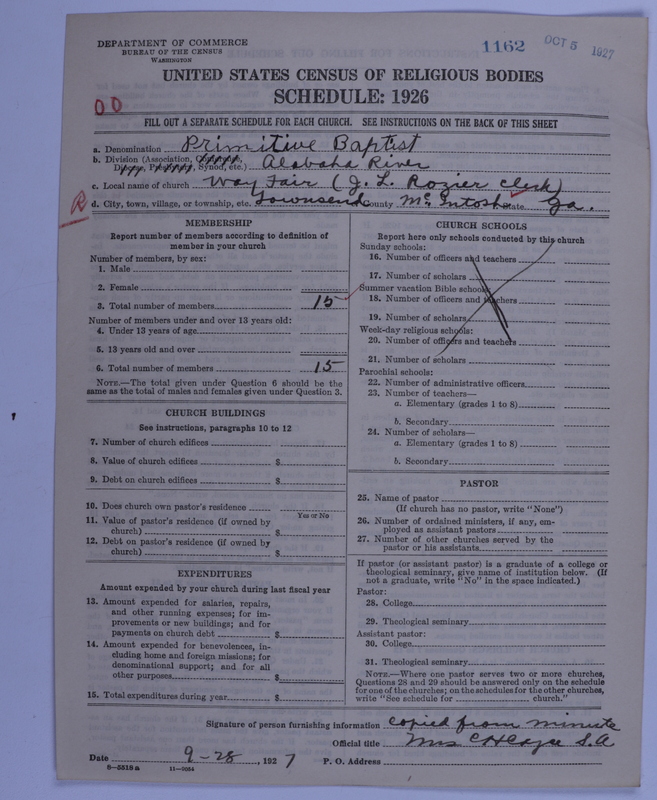 DEPARTMENT OF COMMERCE
BUREAU OF THE CENSUS
WASHINGTON
1162 OCT 5 1927
UNITED STATES CENSUS OF RELIGIOUS BODIES
SCHEDULE: 1926
00
FILL OUT A SEPARATE SCHEDULE FOR EACH CHURCH. SEE INSTRUCTIONS ON THE BACK OF THIS SHEET
a. Denomination Primitive Baptist
b. Division (Association, Conference,
Diocese, Presbytery, Synod, etc.) Alabaha River
c. Local name of church Way Fair (J. L. Rozier Clerk)
R d. City, town, village, or township, etc. Townsend County McIntosh State Ga.
MEMBERSHIP
Report number of members according to definition of
member in your church
Number of members, by sex:
1. Male
2. Female
3. Total number of members 15
Number of members under and over 13 years old:
4. Under 13 years of age
5. 13 years old and over
6. Total number of members 15
NOTE.—The total given under Question 6 should be the
same as the total of males and females given under Question 3.
CHURCH BUILDINGS
See instructions, paragraphs 10 to 12
7. Number of church edifices
8. Value of church edifices $
9. Debt on church edifices $
10. Does church own pastor's residence
Yes or No
11. Value of pastor's residence (if owned by
church) $
12. Debt on pastor's residence (if owned by
church) $
EXPENDITURES
Amount expended by your church during last fiscal year
13. Amount expended for salaries, repairs,
and other running expenses; for im-
provements or new buildings; and for
payments on church debt $
14. Amount expended for benevolences, in-
cluding home and foreign missions; for
denominational support; and for all
other purposes $
15. Total expenditures during year $
CHURCH SCHOOLS
Report here only schools conducted by this church
Sunday schools:
16. Number of officers and teachers
17. Number of scholars
Summer vacation Bible schools:
18. Number of officers and teachers
19. Number of scholars
Week-day religious schools:
20. Number of officers and teachers
21. Number of scholars
Parochial schools:
22. Number of administrative officers
23. Number of teachers—
a. Elementary (grades 1 to 8)
b. Secondary
24. Number of scholars—
a. Elementary (grades 1 to 8)
b. Secondary
PASTOR
25. Name of pastor
(If church has no pastor, write "None")
26. Number of ordained ministers, if any, em-
ployed as assistant pastors
27. Number of other churches served by the
pastor or his assistants
If pastor (or assistant pastor) is a graduate of a college or
theological seminary, give name of institution below. (If
not a graduate, write "No" in the space indicated.)
Pastor:
28. College
29. Theological seminary
Assistant pastor:
30. College
31. Theological seminary
NOTE.—Where one pastor serves two or more churches,
Questions 28 and 29 should be answered only on the schedule
for one of the churches; on the schedules for the other churches,
write "See schedule for church."
Signature of person furnishing information Copied from minute
Official title Mrs S.A
Date 9-28, 1927 P. O. Address
8—5518a 11—9064